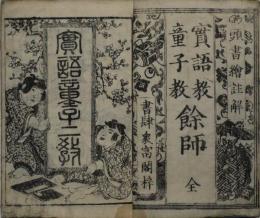 頭書繪註解
實語教
童子教
餘師
全
書肆
衆富閣梓
實語童子二教